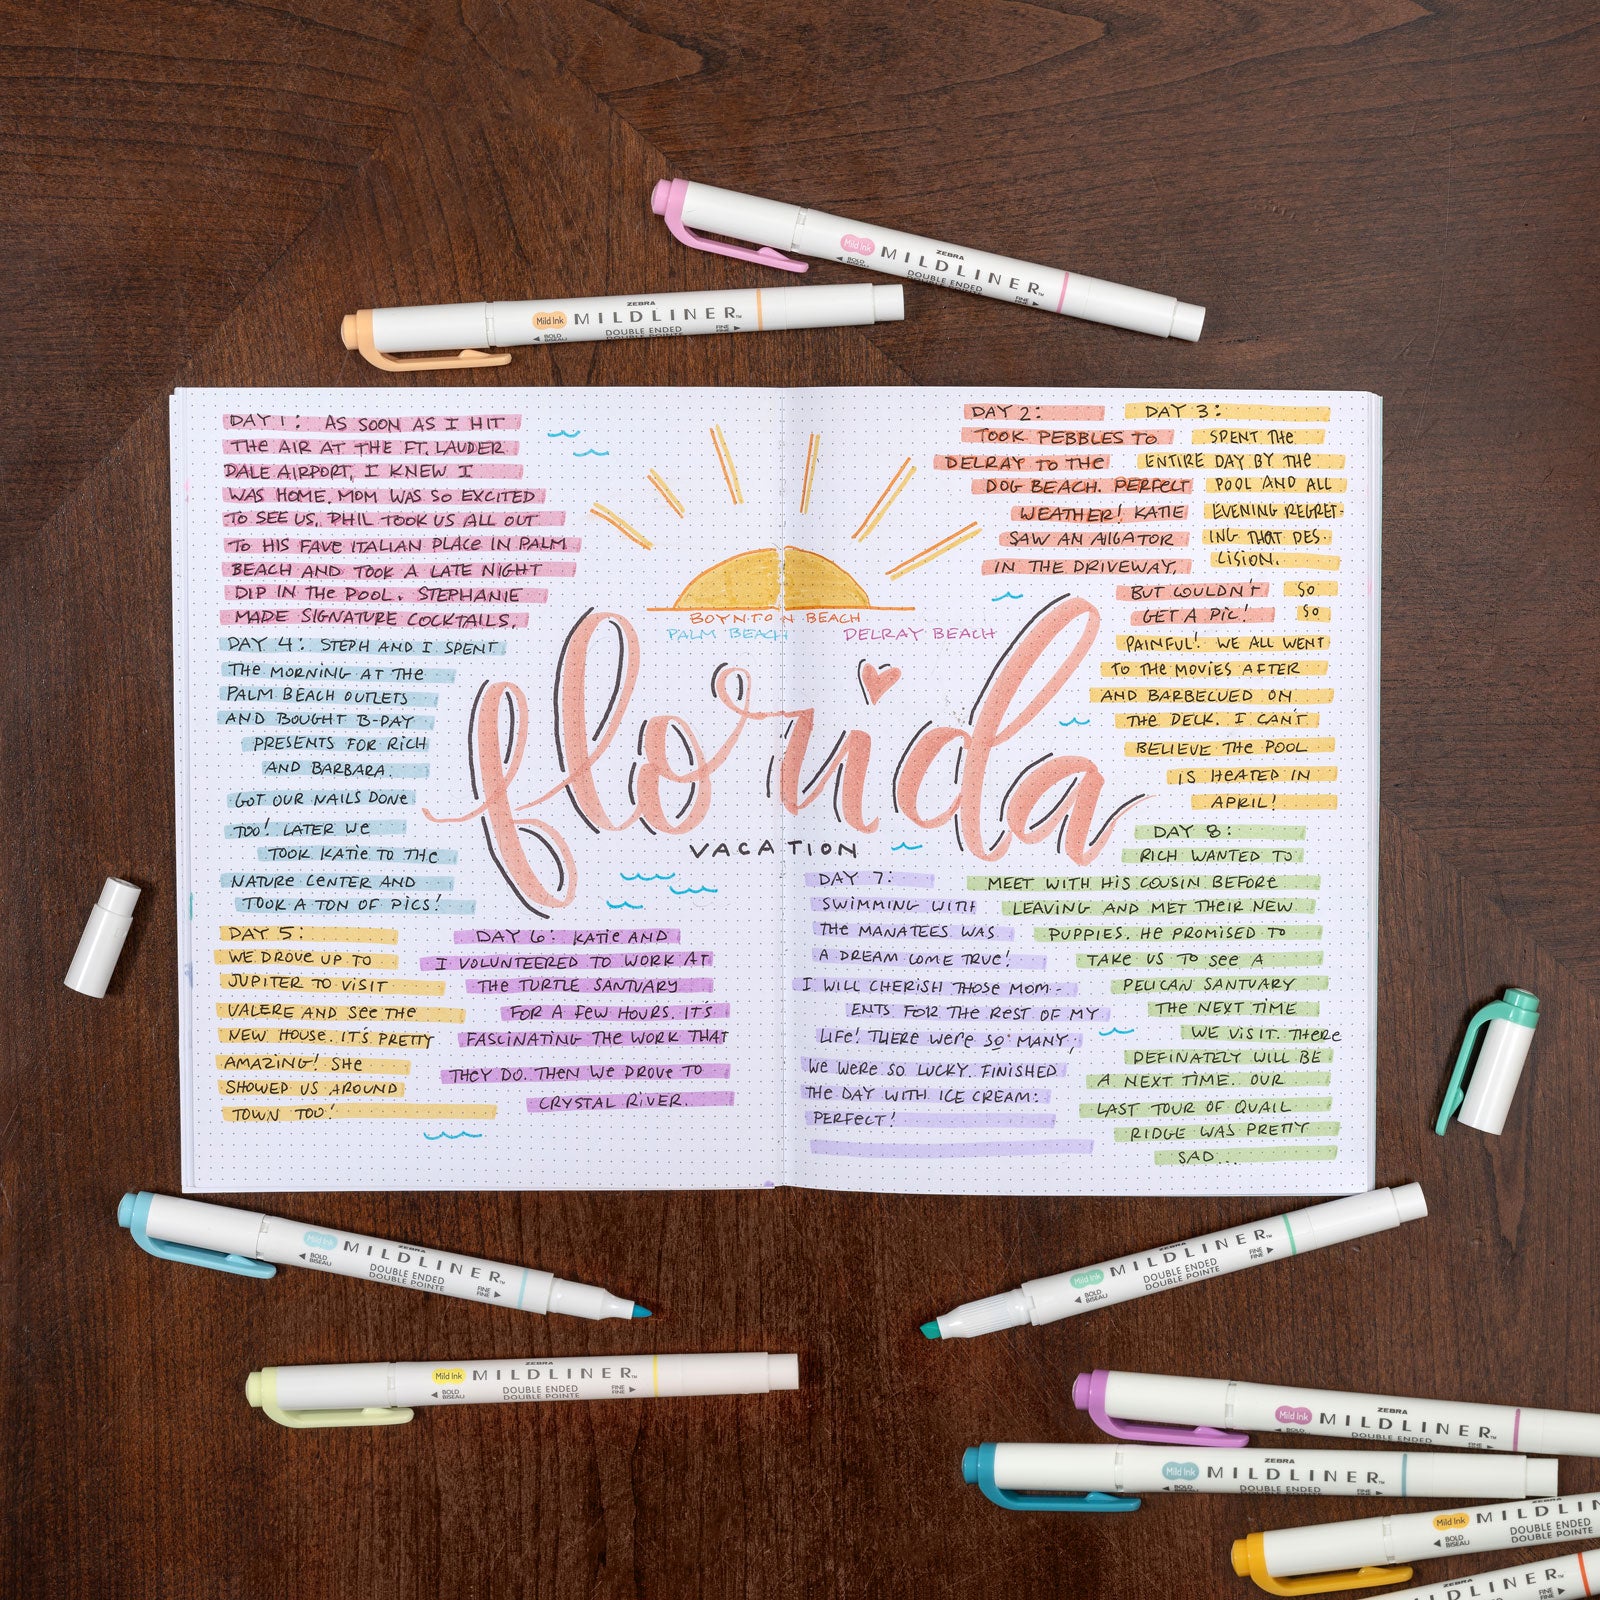 Mild Ink
ZEBRA
MILDLINER™
◄ BOLD
DOUBLE ENDED
FINE ►
Mild Ink
ZEBRA
MILDLINER™
◄ BOLD
DOUBLE ENDED
DOUBLE POINTE
FINE ►
DAY 1: AS SOON AS I HIT
THE AIR AT THE FT. LAUDER
DALE AIRPORT, I KNEW I
WAS HOME. MOM WAS SO EXCITED
TO SEE US. PHIL TOOK US ALL OUT
TO HIS FAVE ITALIAN PLACE IN PALM
BEACH AND TOOK A LATE NIGHT
DIP IN THE POOL. STEPHANIE
MADE SIGNATURE COCKTAILS.
DAY 2:
TOOK PEBBLES TO
DELRAY TO THE
DOG BEACH. PERFECT
WEATHER! KATIE
SAW AN AlGATOR
IN THE DRIVEWAY.
BUT COULDN'T
GET A PIC!
DAY 3:
SPENT THE
ENTIRE DAY BY THE
POOL AND ALL
EVENING REGRET-
ING THAT DES-
CISION.
SO
SO
PAINFUL! WE ALL WENT
TO THE MOVIES AFTER
AND BARBECUED ON
THE DECK. I CAN'T
BELIEVE THE POOL
IS HEATED IN
APRIL!
BOYNTON BEACH
PALM BEACH
DELRAY BEACH
florida
VACATION
DAY 4: STEPH AND I SPENT
THE MORNING AT THE
PALM BEACH OUTLETS
AND BOUGHT B-DAY
PRESENTS FOR RICH
AND BARBARA.
GOT OUR NAILS DONE
TOO! LATER WE
TOOK KATIE TO THE
NATURE CENTER AND
TOOK A TON OF PICS!
DAY 5:
WE DROVE UP TO
JUPITER TO VISIT
VALERE AND SEE THE
NEW HOUSE. IT'S PRETTY
AMAZING! SHE
SHOWED US AROUND
TOWN TOO!
DAY 6: KATIE AND
I VOLUNTEERED TO WORK AT
THE TURTLE SANTUARY
FOR A FEW HOURS. IT'S
FASCINATING THE WORK THAT
THEY DO. THEN WE DROVE TO
CRYSTAL RIVER.
DAY 7:
SWIMMING WITH
THE MANATEES WAS
A DREAM COME TRUE!
I WILL CHERISH THOSE MOM-
ENTS FOR THE REST OF MY
LIFE! THERE WERE SO MANY,
WE WERE SO LUCKY. FINISHED
THE DAY WITH ICE CREAM:
PERFECT!
DAY 8:
RICH WANTED TO
MEET WITH HIS COUSIN BEFORE
LEAVING AND MET THEIR NEW
PUPPIES. HE PROMISED TO
TAKE US TO SEE A
PELICAN SANTUARY
THE NEXT TIME
WE VISIT. THERE
DEFINATELY WILL BE
A NEXT TIME. OUR
LAST TOUR OF QUAIL
RIDGE WAS PRETTY
SAD...
Mild Ink
ZEBRA
MILDLINER™
◄ BOLD
BISEAU
DOUBLE ENDED
DOUBLE POINTE
FINE
FINE ►
Mild Ink
ZEBRA
MILDLINER™
◄ BOLD
BISEAU
DOUBLE ENDED
DOUBLE POINTE
FINE
FINE ►
Mild Ink
ZEBRA
MILDLINER™
◄ BOLD
BISEAU
DOUBLE ENDED
DOUBLE POINTE
FINE
FINE ►
Mild Ink
ZEBRA
MILDLINER™
◄ BOLD
DOUBLE ENDED
FINE ►
Mild Ink
ZEBRA
MILDLINER™
◄ BOLD
DOUBLE ENDED
FINE ►
Mild Ink
MILDLIN
◄ BOLD
BISEAU
DOUBLE ENDED
DOUBLE POINTE
MILDLINER™